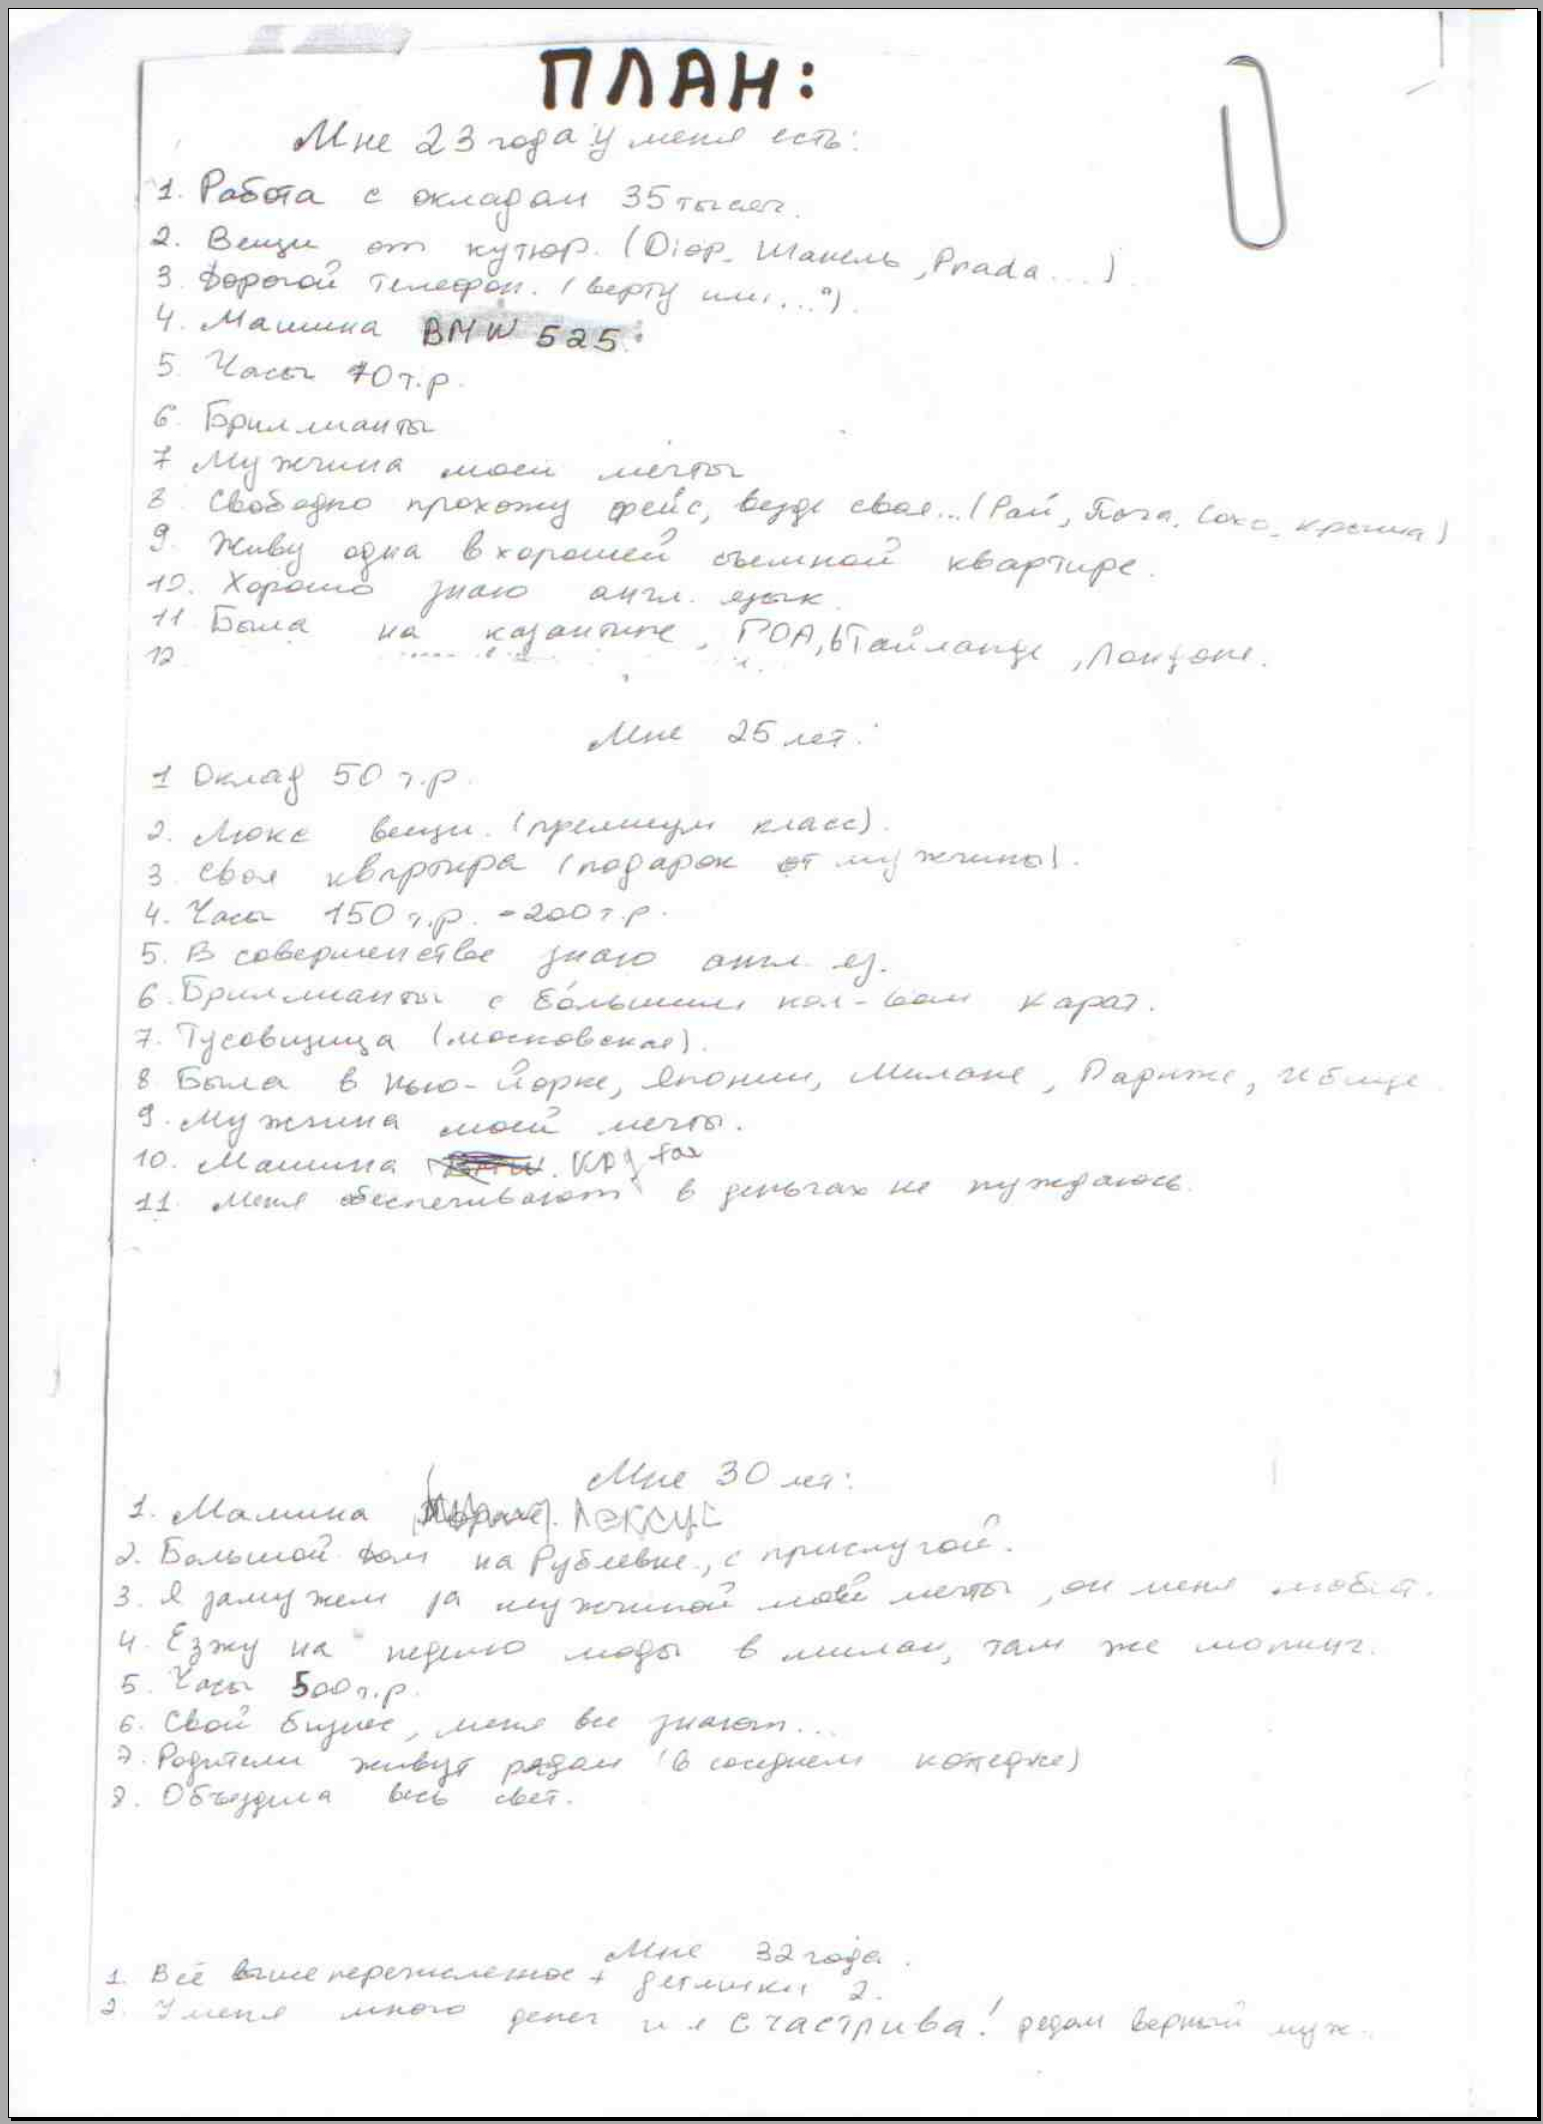 ПЛАН:
Мне 23 года у меня есть:
1. Работа с окладом 35 тысяч.
2. Вещи от кутюр. (Diор, Шанель, Prada...)
3. Дорогой телефон. (верту или...)
4. Машина BMW 525.
5. Часы 70 т.р.
6. Бриллианты
7 Мужчина моей мечты
8. Свободно прохожу фейс, везде своя... (Рай, Поча, Сохо, крыша)
9. Живу одна в хорошей съемной квартире.
10. Хорошо знаю англ. язык.
11 Была на казантипе, ГОА, в Тайланде, Лондоне.
12
Мне 25 лет:
1 Оклад 50 т.р.
2. Люкс вещи. (премиум класс).
3. Своя квартира (подарок от мужчины).
4. Часы 150 т.р. - 200 т.р.
5. В совершенстве знаю англ. яз.
6. Бриллианты с большим кол-вом карат.
7. Тусовщица (московская).
8. Была в Нью-Йорке, Японии, Милане, Париже, Ибице.
9. Мужчина моей мечты.
10. Машина
11. Меня обеспечивают в деньгах не нуждаюсь.
Мне 30 лет:
1. Машина Лексус
2. Большой дом на Рублевке, с прислугой.
3. Я замужем за мужчиной моей мечты, он меня любит.
4. Езжу на неделю моды в милан, там же шопинг.
5. Часы 500 т.р.
6. Свой бизнес, меня все знают...
7. Родители живут рядом (в соседнем котедже)
8. Объездила весь свет.
Мне 32 года.
1. Всё вышеперечисленное + детишки 2.
2. У меня много денег и я счастлива! рядом верный муж..